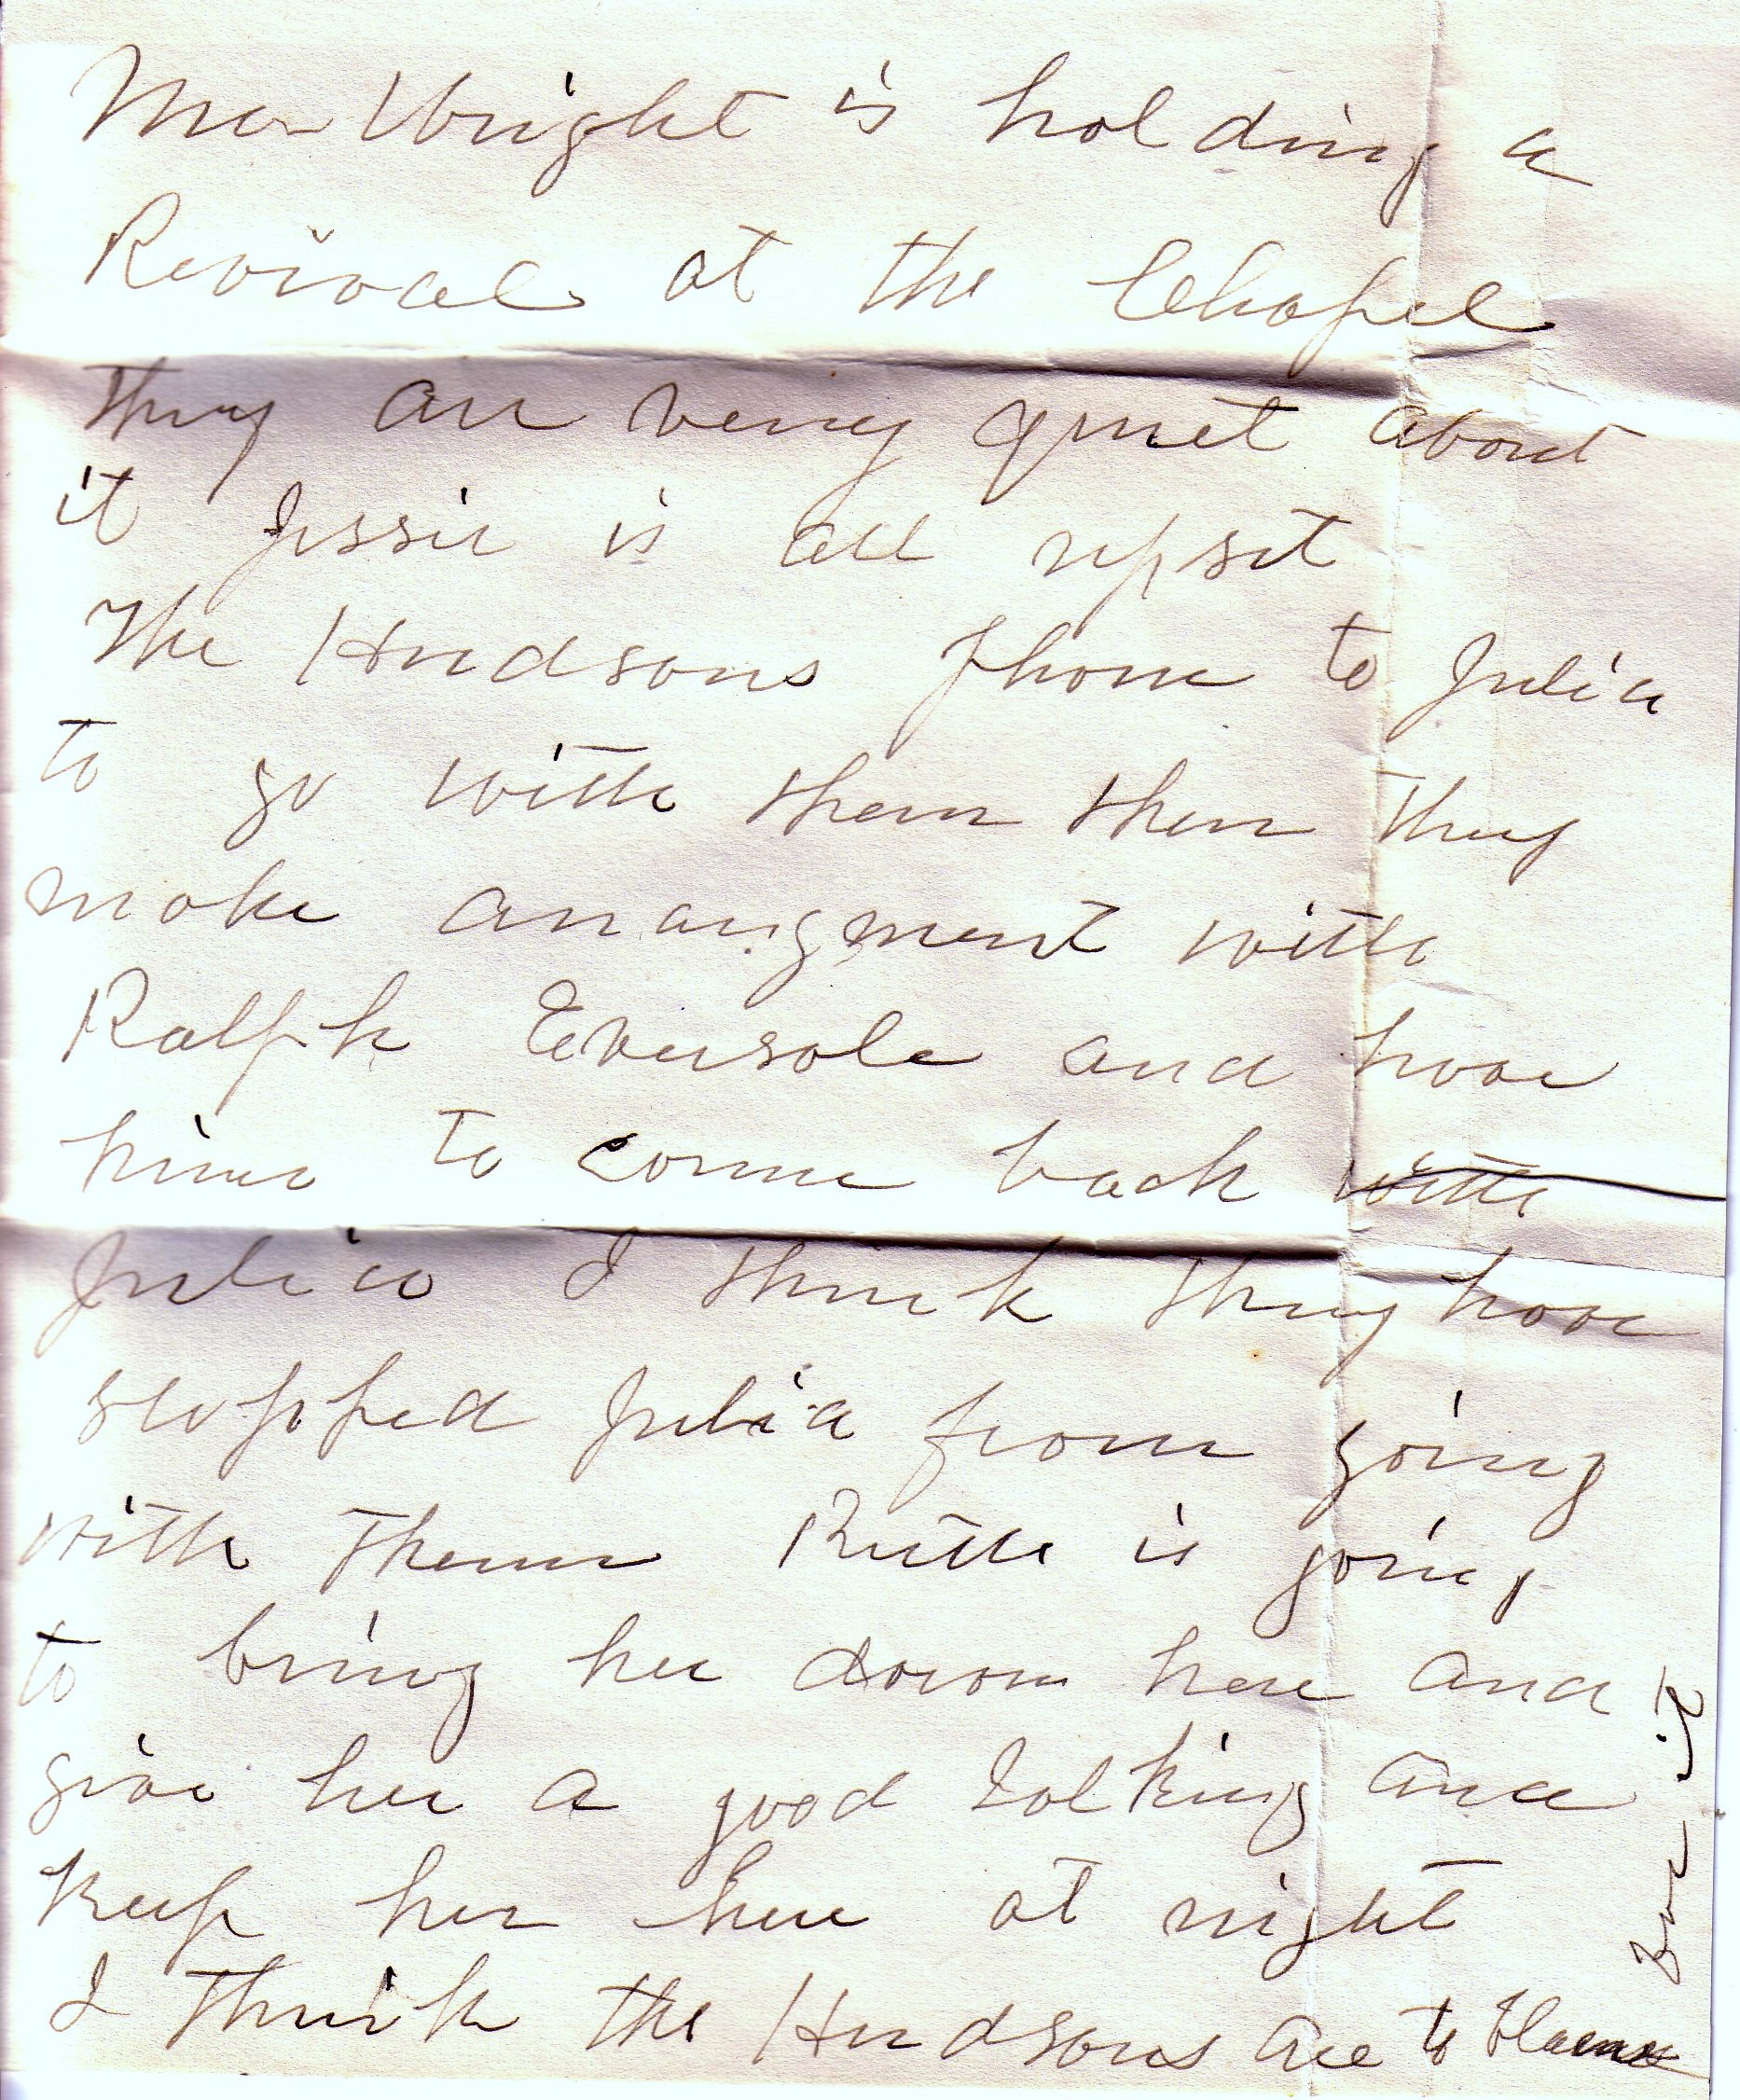 Mr Wright is holding a
Revival at the Chapel
they are very quiet about
it Jessie is all upset
The Hudsons phone to Julia
to go with them then they
make arrangment with
Ralph Eversole and have
him to come back with
Julia I think they have
stopped Julia from going
with them Ruth is going
to bring her down here and
give her a good talking and
keep her here at night
I think the Hudsons are to blame
for it